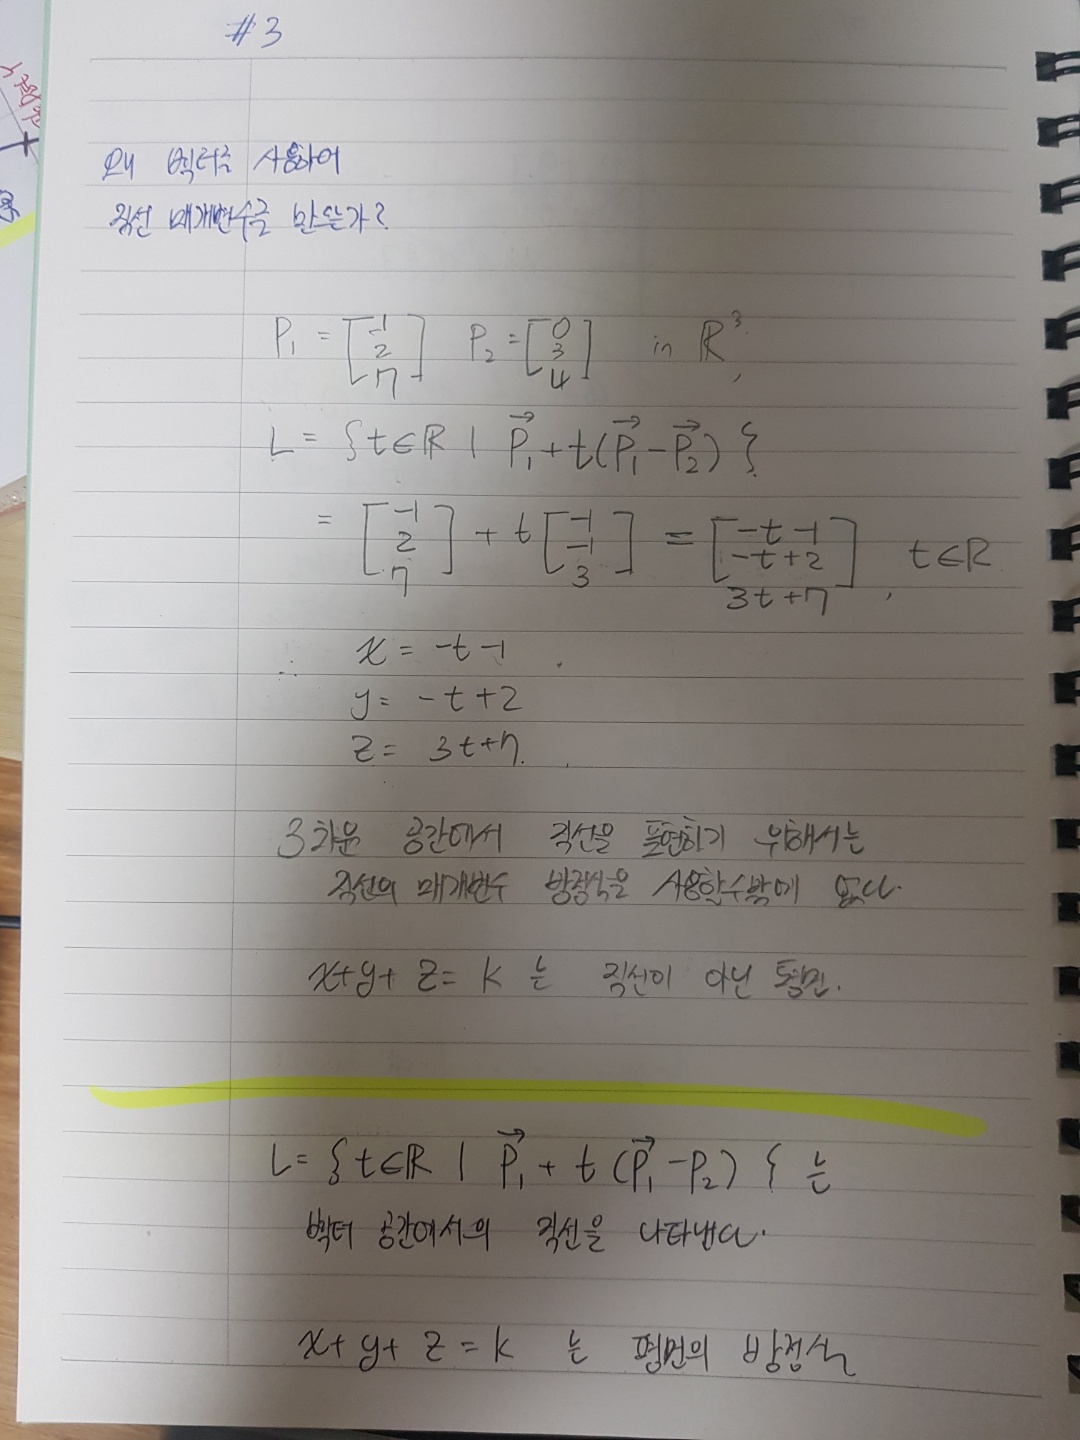 #3
왜 벡터를 사용하여
직선 매개변수를 만드는가?
P₁ = [-1 2 7] P₂ = [0 3 4] in ℝ³,
L = {t∈ℝ | P⃗₁ + t(P⃗₁ - P⃗₂) }
= [-1 2 7] + t [-1 -1 3] = [-t-1 -t+2 3t+7], t∈ℝ
∴ x = -t-1
y = -t+2
z = 3t+7.
3차원 공간에서 직선을 표현하기 위해서는
직선의 매개변수 방정식을 사용할수밖에 없다.
x+y+z = k 는 직선이 아닌 평면.
L = {t∈ℝ | P⃗₁ + t (P⃗₁ - P₂) } 는
벡터 공간에서의 직선을 나타낸다.
x+y+z = k 는 평면의 방정식